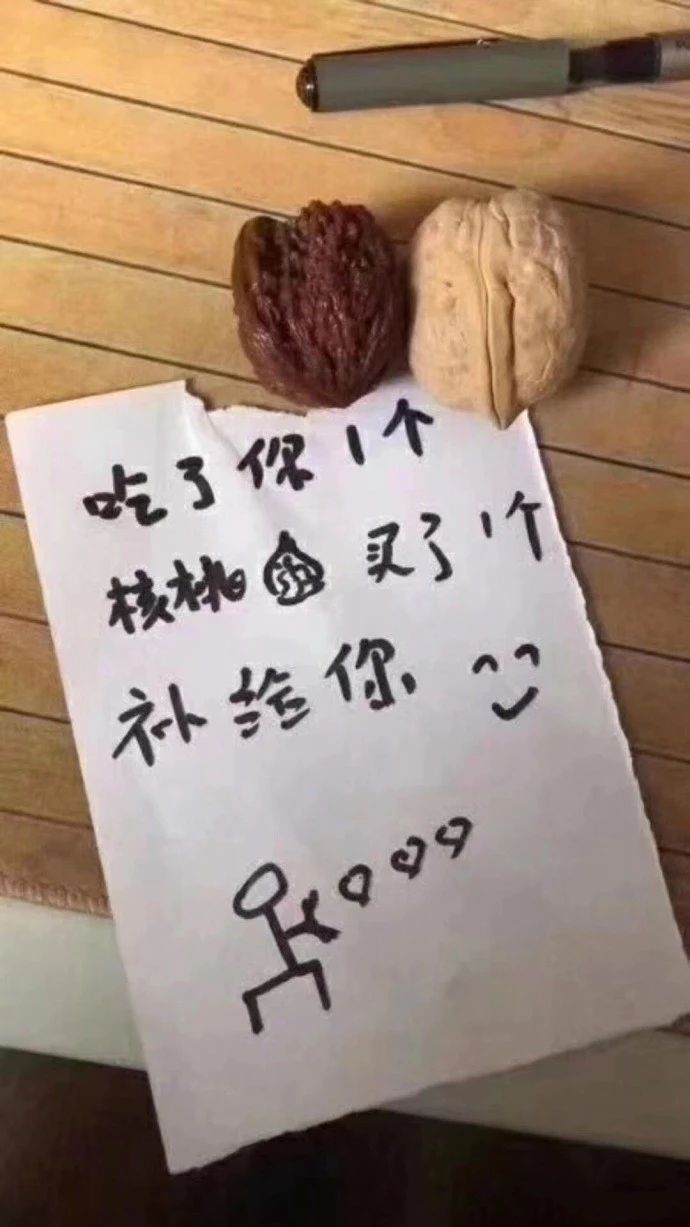 吃了你1个
核桃 买了1个
补给你